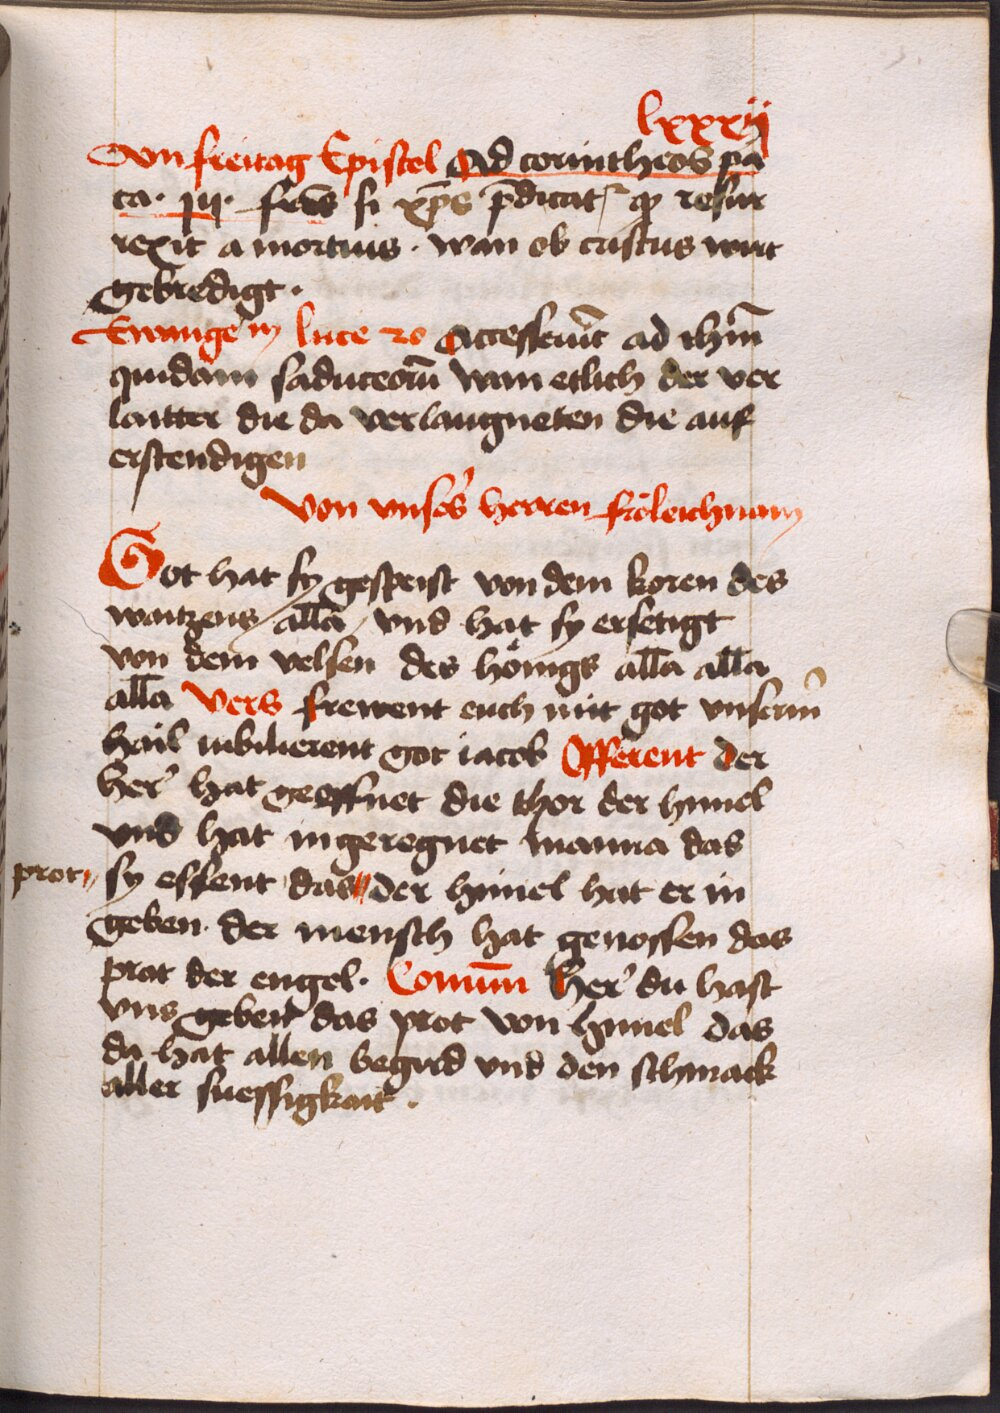 lxxxij
Am freitag Epistel Ad corintheos pᷓa
ca. xv. frēs si xp̄s p̄dicat͛ qͦ resur
rexit a mortuis. wan ob cristus wirt
gebredigt.
Ewange in luce 20 Accesserūt ad ihm̄
quidam saduceorū wan etlich der ver
laitter die da verlaugneten die auf
erstendigen
Von vnsers herren fröleichnam
Got hat sy gespeist von dem koren des
waitzens all̄a vnd hat sy ersetigt
von dem velsen des hönigs all̄a all̄a
all̄a Vers frewent euch mit got vnserm
hail iubilierent got iacob Offerent der
her' hat geoffnet die thor der himel
vnd hat in geregnet manna das
prot sy essent das der himel hat er in
geben. der mensch hat genossen das
prot der engel. Comūn Her' du hast
vns geben das prot von himel das
da hat allen begird vnd den schmack
aller suessigkait.